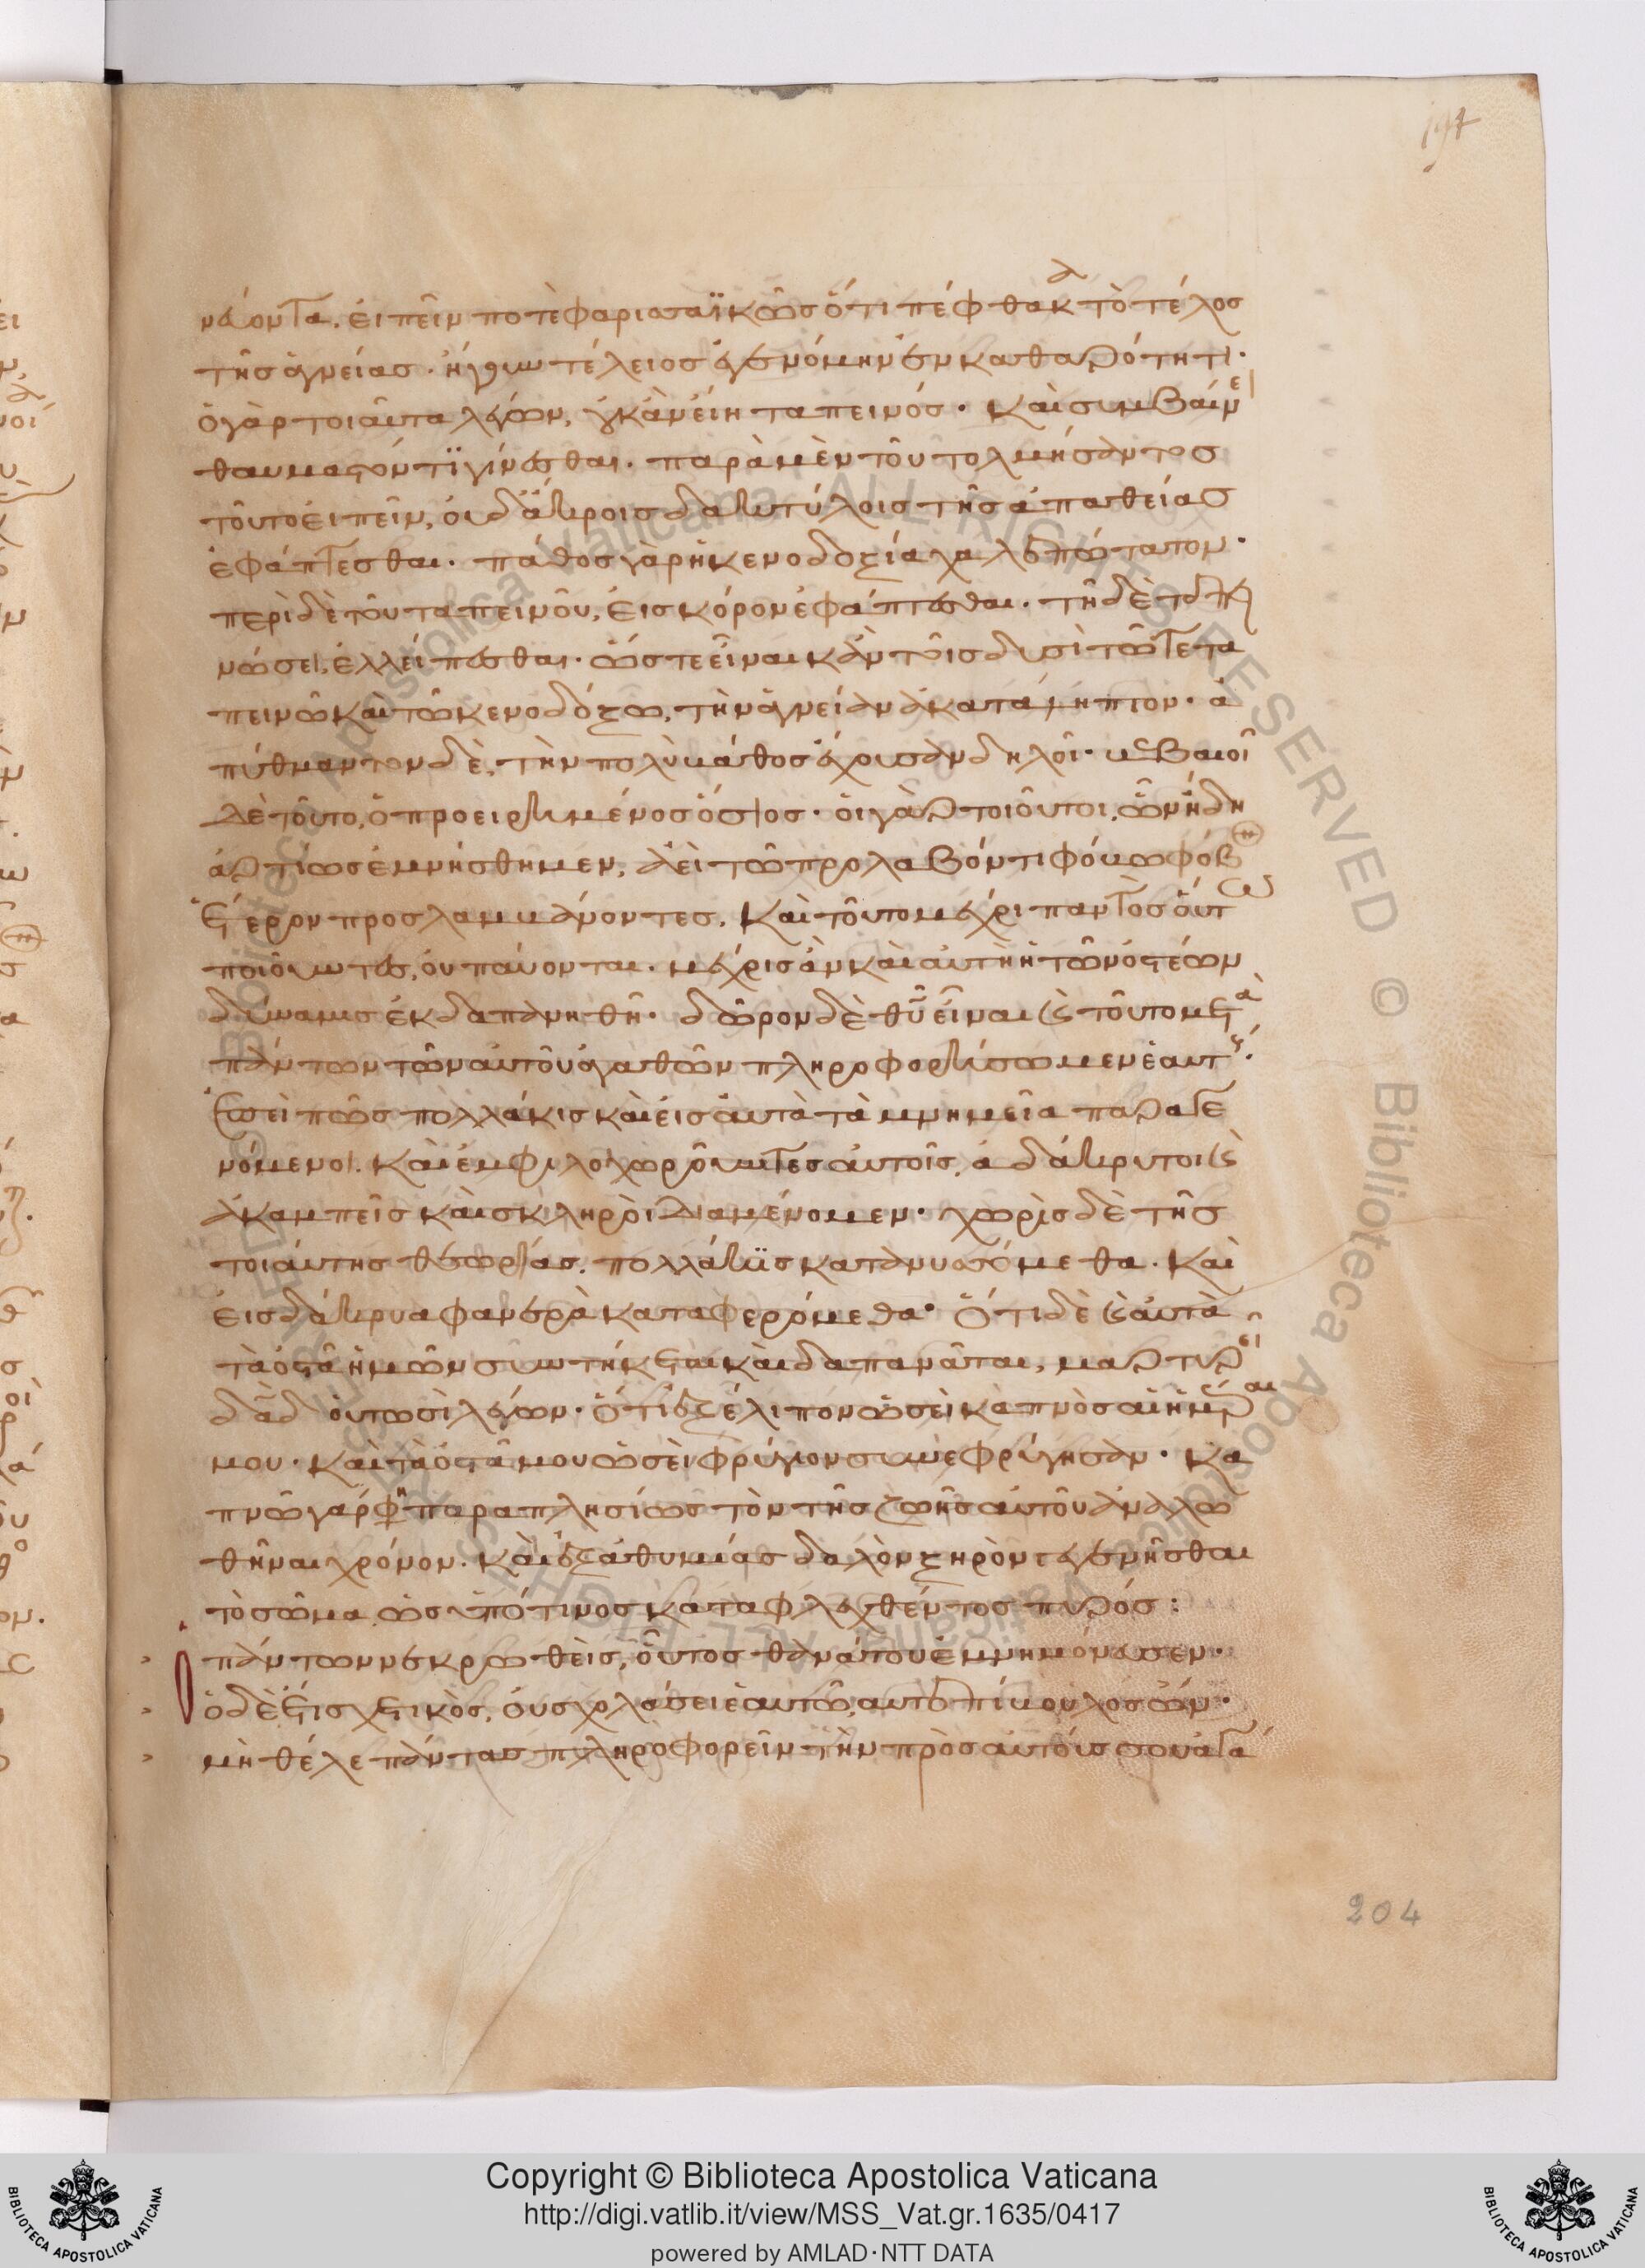 194
νεύοντα. εἰπεῖν ποτὲ φαρισαϊκῶς ὅτι πέφθακα τὸ τέλος
τῆς ἁγνείας. ἤγουν τέλειος ἐγενόμην ἐν καθαρότητι.
ὁ γὰρ τοιαῦτα λέγων, οὐκ ἂν εἴη ταπεινός. καὶ συμβαίνει
θαυμαστόν τϊ γίνεσθαι. παρὰ μὲν τοῦ τολμήσαντος
τοῦτο εἰπεῖν, οὐδ' ἄκροις δακτύλοις τῆς ἀπαθείας
ἐφάπτεσθαι. πάθος γὰρ ἡ κενοδοξία χαλεπώτατον.
περὶ δὲ τοῦ ταπεινοῦ, εἰς κόρον ἐφάπτεσθαι. τῇ δὲ
νώσει, ἐλλείπεσθαι. ὥστε εἶναι κἀν τοῖς δυσὶ τῷ τε τα
πεινῷ καὶ τῷ κενοδόξῳ, τὴν ἁγνείαν ἀκατάληπτον. ἀ
πύθμαντον δὲ, τὴν πολὺ βάθος ἔχουσαν δηλοῖ. βεβαιοῖ
δὲ τοῦτο, ὁ προειρημένος ὅσιος. οἱ γὰρ τοιοῦτοι, ὧν ἤδη
ἀρτίως ἐμνήσθημεν, ἀεὶ τῷ προλαβόντι φόβῳ φόβον
ἕτερον προσλαμβάνοντες, καὶ τοῦτο μέχρι παντὸς οὕτω
ποιοῦντες, οὐ παύονται. μέχρις ἂν καὶ αὐτὴ ἡ τῶν ὀστέων
δύναμις ἐκδαπανηθῇ. δῶρον δὲ θῦ εἶναι καὶ τοῦτο μετὰ
πάντων τῶν αὐτοῦ ἀγαθῶν πληροφορήσωμεν ἑαυτούς.
ἐπεὶ πῶς πολλάκις καὶ εἰς αὐτὰ τὰ μνημεῖα παραγε
νόμενοι. καὶ ἐμφιλοχωροῦντες αὐτοῖς, ἀδάκρυτοι καὶ
ἀκαμπεῖς καὶ σκληροὶ διαμένομεν. χωρὶς δὲ τῆς
τοιαύτης θεωρίας. πολλάκϊς κατανυσσόμεθα. καὶ
εἰς δάκρυα φανερὰ καταφερόμεθα. ὅτι δὲ καὶ αὐτὰ
τὰ ὀστᾶ ἡμῶν συντήκεται καὶ δαπανᾶται, μαρτυρεῖ
δᾱδ οὑτωσὶ λέγων. ὅτι ἐξέλιπον ὡσεὶ καπνὸς αἱ ἡμέραι
μου. καὶ τὰ ὀστᾶ μου ὡσεὶ φρύγιον συνεφρύγησαν. κα
πνῷ γάρ φησι παραπλησίως τὸν τῆς ζωῆς αὐτοῦ ἀναλω
θῆναι χρόνον. καὶ ἐξ ἀθυμίας δαλὸν ξηρὸν γεγενῆσθαι
τὸ σῶμα ὡς ὑπό τινος καταφλεχθέντος πυρός:
πάντων νεκρωθεὶς, οὗτος θανάτου ἐμνημόνευσεν.
ὁ δὲ ἔτι σχετικὸς, οὐ σχολάσει ἑαυτῷ, αὐτὸ ἐπίβουλος ὤν.
μὴ θέλε πάντας πληροφορεῖν τὴν πρὸς αὐτοὺς σου ἀγά
204
Copyright © Biblioteca Apostolica Vaticana
http://digi.vatlib.it/view/MSS_Vat.gr.1635/0417
powered by AMLAD·NTT DATA